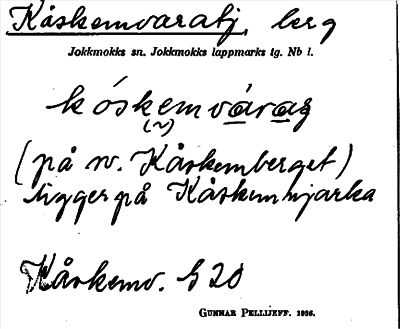 Kåskemvaratj, berg
Jokkmokks sn. Jokkmokks lappmarks tg. Nb l.
kóskemvárɑg
(~)
(på sv. Kåskemberget)
ligger på Kåskemnjarka
Kåskemv. G 20
GUNNAR PELLIJEFF. 1936.